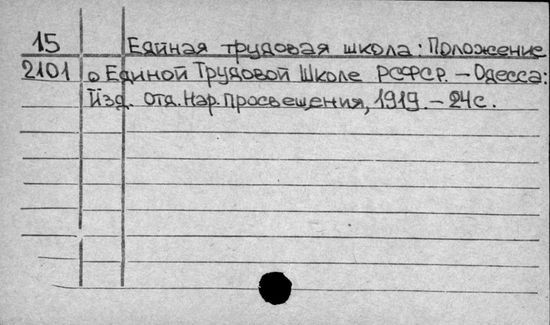 15 Единая трудовая школа: Положение
2101 о Единой Трудовой Школе РСФСР. – Одесса:
Изд. отд. Нар. Просвещения, 1919. – 24 с.